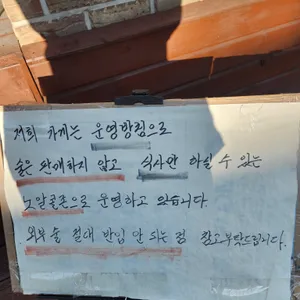 저희 가게는 운영방침으로
술은 판매하지 않고 식사만 하실 수 있는
노알콜존으로 운영하고 있습니다.
외부 술 절대 반입 안 되는 점 참고부탁드립니다.